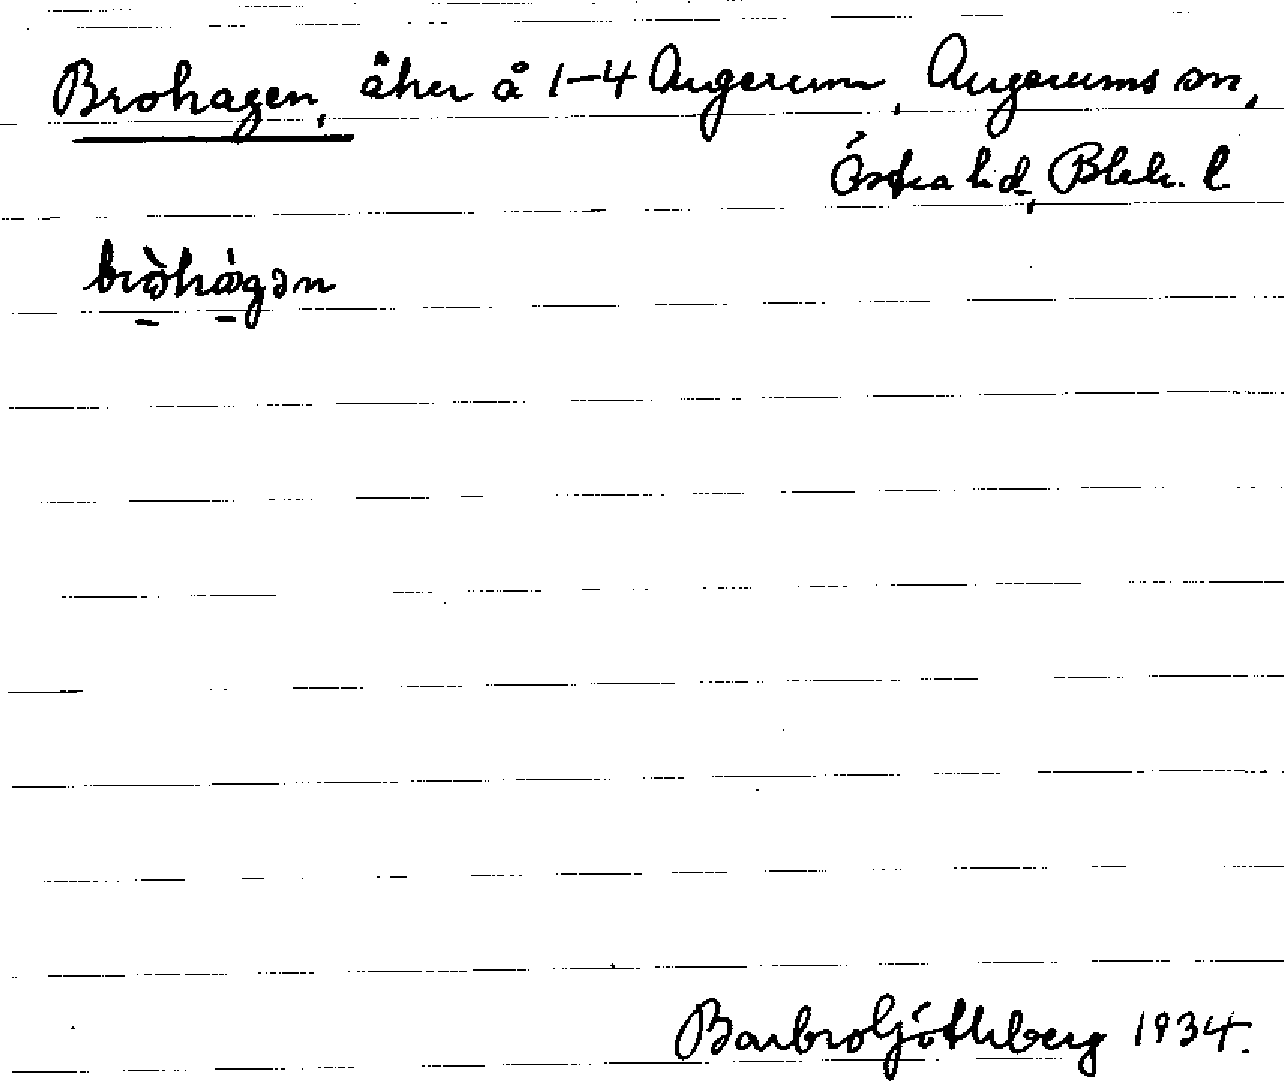 Brohagen, åker å 1-4 Augerum, Augerums sn,
Östra hd, Blek. l
bròhágən
Barbro Göthberg 1934.